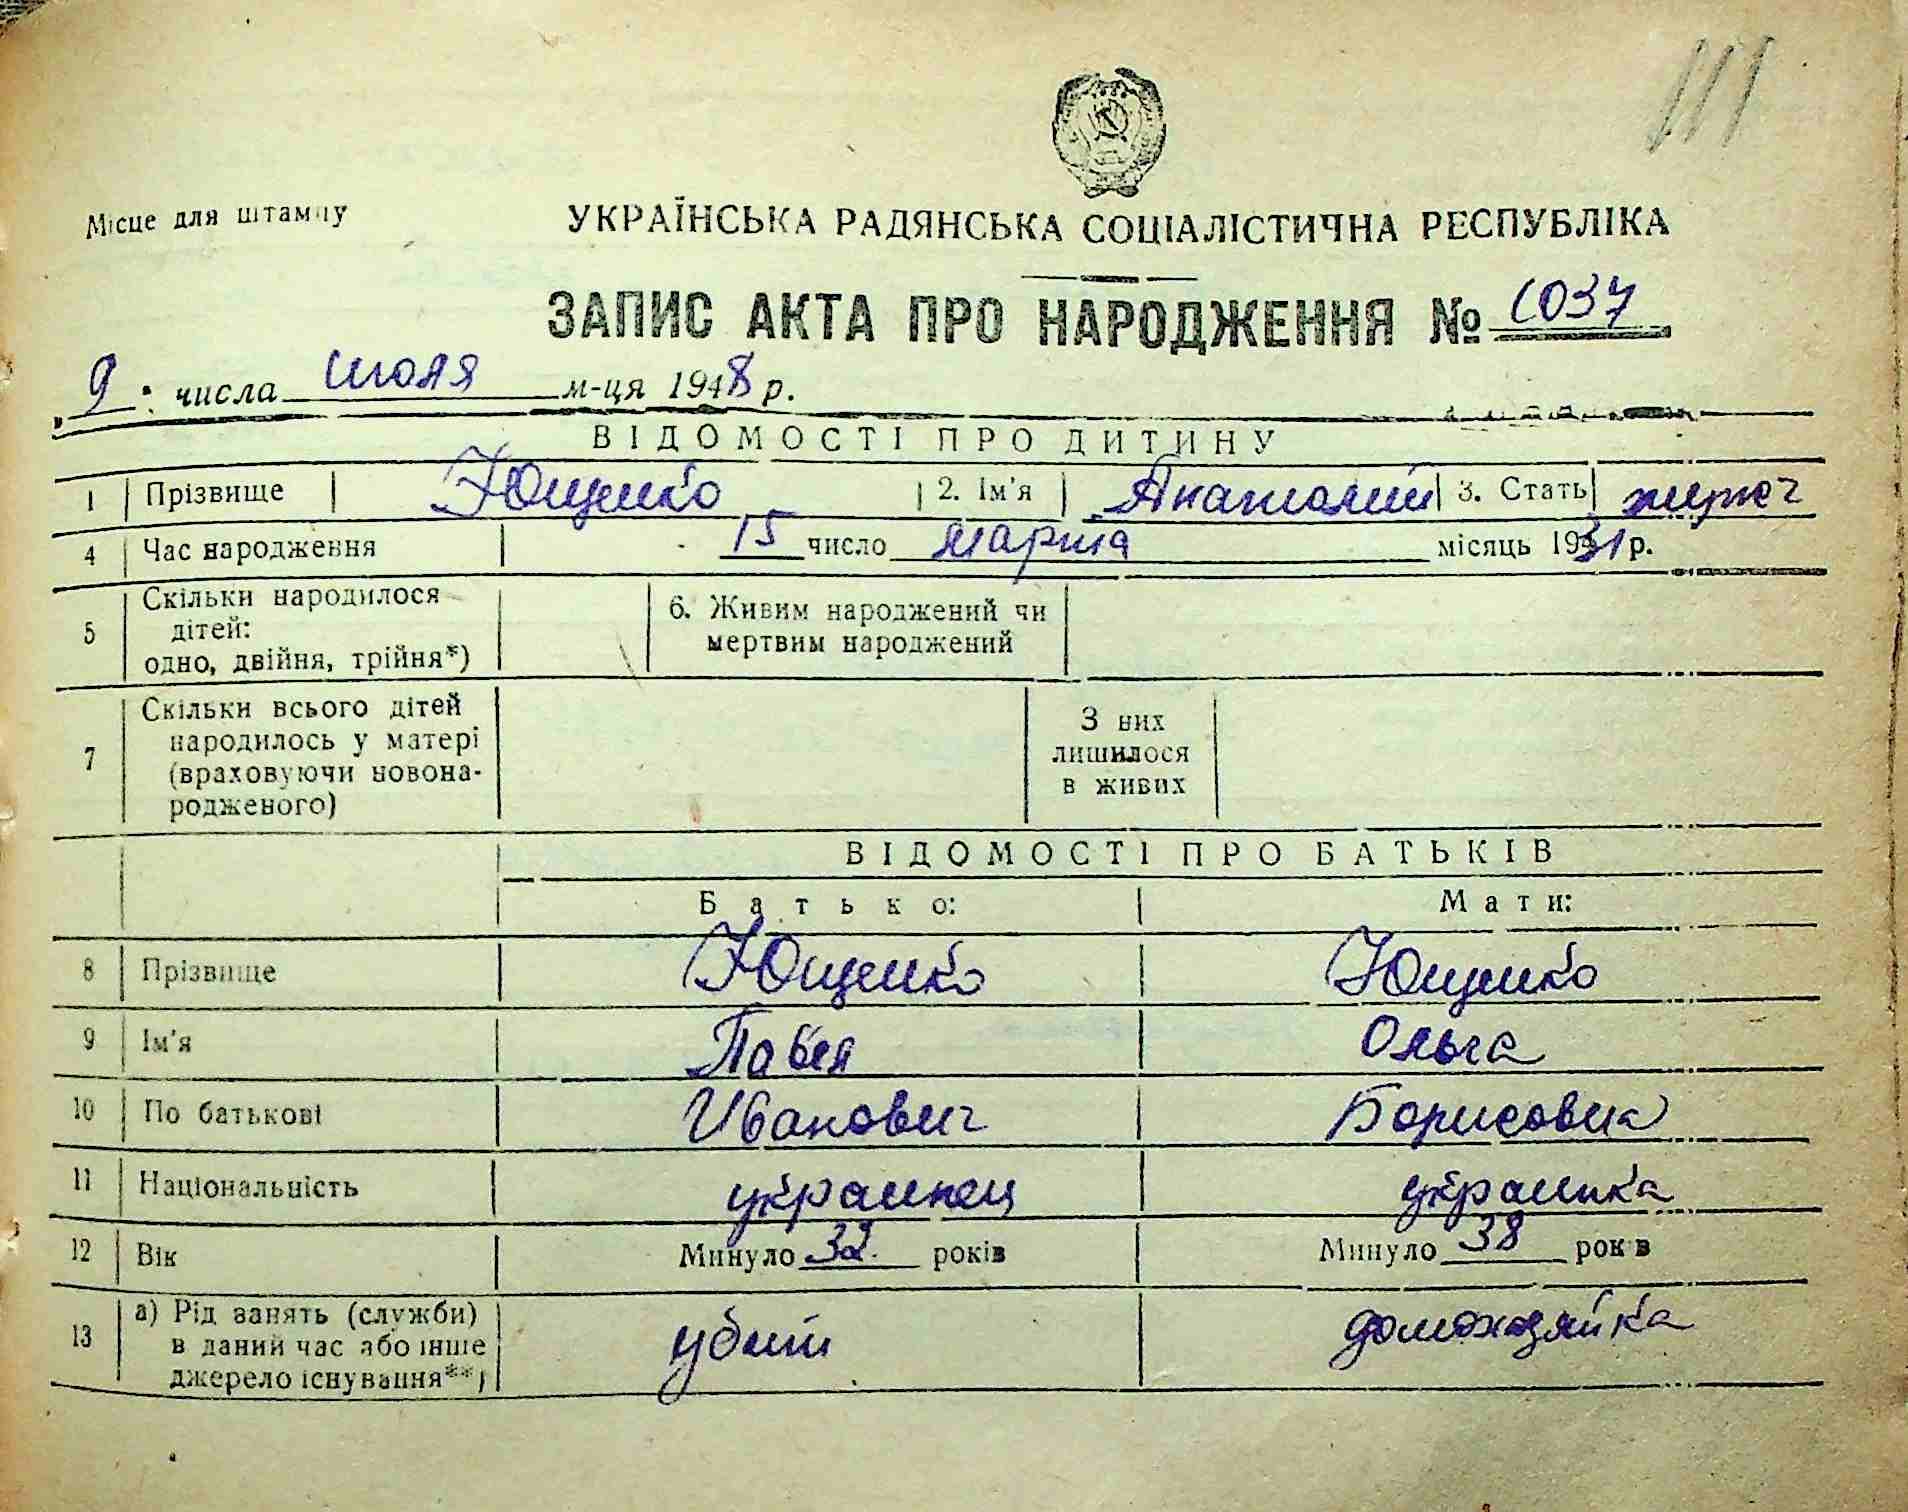 111
Місце для штампу
УКРАЇНСЬКА РАДЯНСЬКА СОЦІАЛІСТИЧНА РЕСПУБЛІКА
ЗАПИС АКТА ПРО НАРОДЖЕННЯ № 1037
„ 9 " числа июля м-ця 1948 р.
ВІДОМОСТІ ПРО ДИТИНУ
1 Прізвище Ющенко 2. Ім'я Анатолий 3. Стать
4 Час народження 15 число марта місяць 1931 р.
5 Скільки народилося дітей: одно, двійня, трійня*) 6. Живим народжений чи мертвим народжений
7 Скільки всього дітей народилось у матері (враховуючи новонародженого) З них лишилося в живих
ВІДОМОСТІ ПРО БАТЬКІВ
Батько: Мати:
8 Прізвище Ющенко Ющенко
9 Ім'я Павел Ольга
10 По батькові Иванович Борисовна
11 Національність украинец украинка
12 Вік Минуло 32 років Минуло 38 років
13 а) Рід занять (служби) в даний час або інше джерело існування**) убит домохозяйка